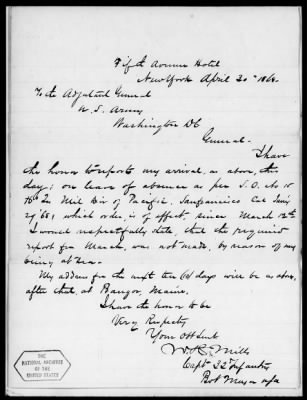 Fifth Avenue Hotel
New York April 20th 1868.
To the Adjutant General
U. S. Army
Washington DC
General.
I have
the honor to report my arrival, as above, this
day; on leave of absence as per S.O. No 10
Hd Qrs Mil Div of Pacific, San Francisco Cal
27 '68, which order, is of effect, since March
I would respectfully state, that the required
report for March, was not made, by reason of my
being at sea.
My address for the next ten (10) days will be as above,
after that, at Bangor, Maine.
I have the honor to be
Very Respectfy
Your Obt Servt
Mills
Capt 32 Infantry
Bvt Major USA
THE
NATIONAL ARCHIVES
OF THE
UNITED STATES